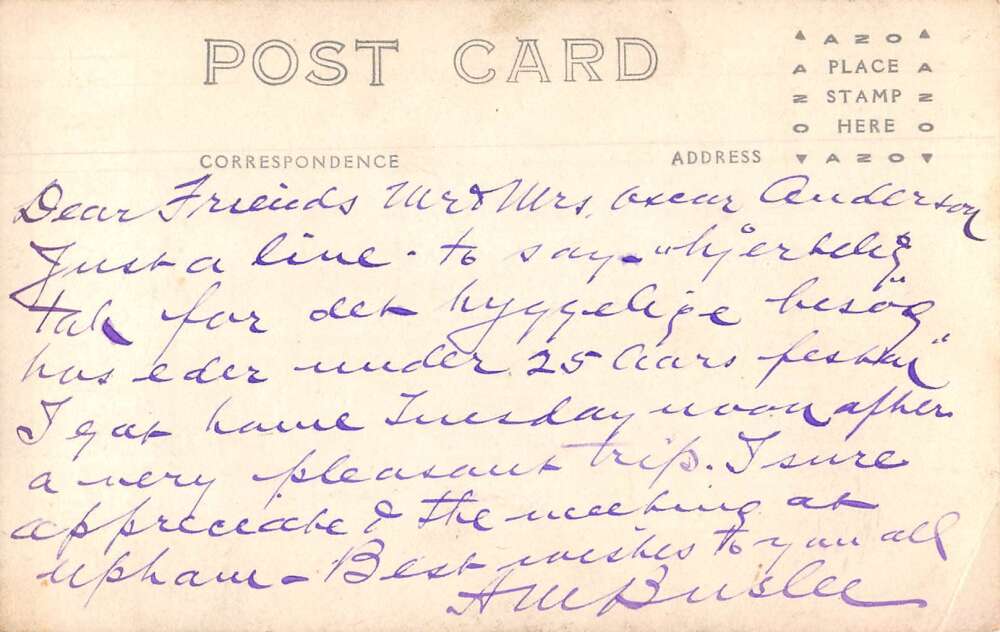 POST CARD
AZO
A PLACE A
Z STAMP Z
O HERE O
AZO
CORRESPONDENCE
ADDRESS
Dear Friends Mr & Mrs. Oscar Anderson
Just a line - to say - "hjertelig
tak for det hyggelige besög
hos eder under 25 Aars festen"
I got home Tuesday noon after
a very pleasant trip. I sure
appreciated the meeting at
Upham - Best wishes to you all
A M Buslee